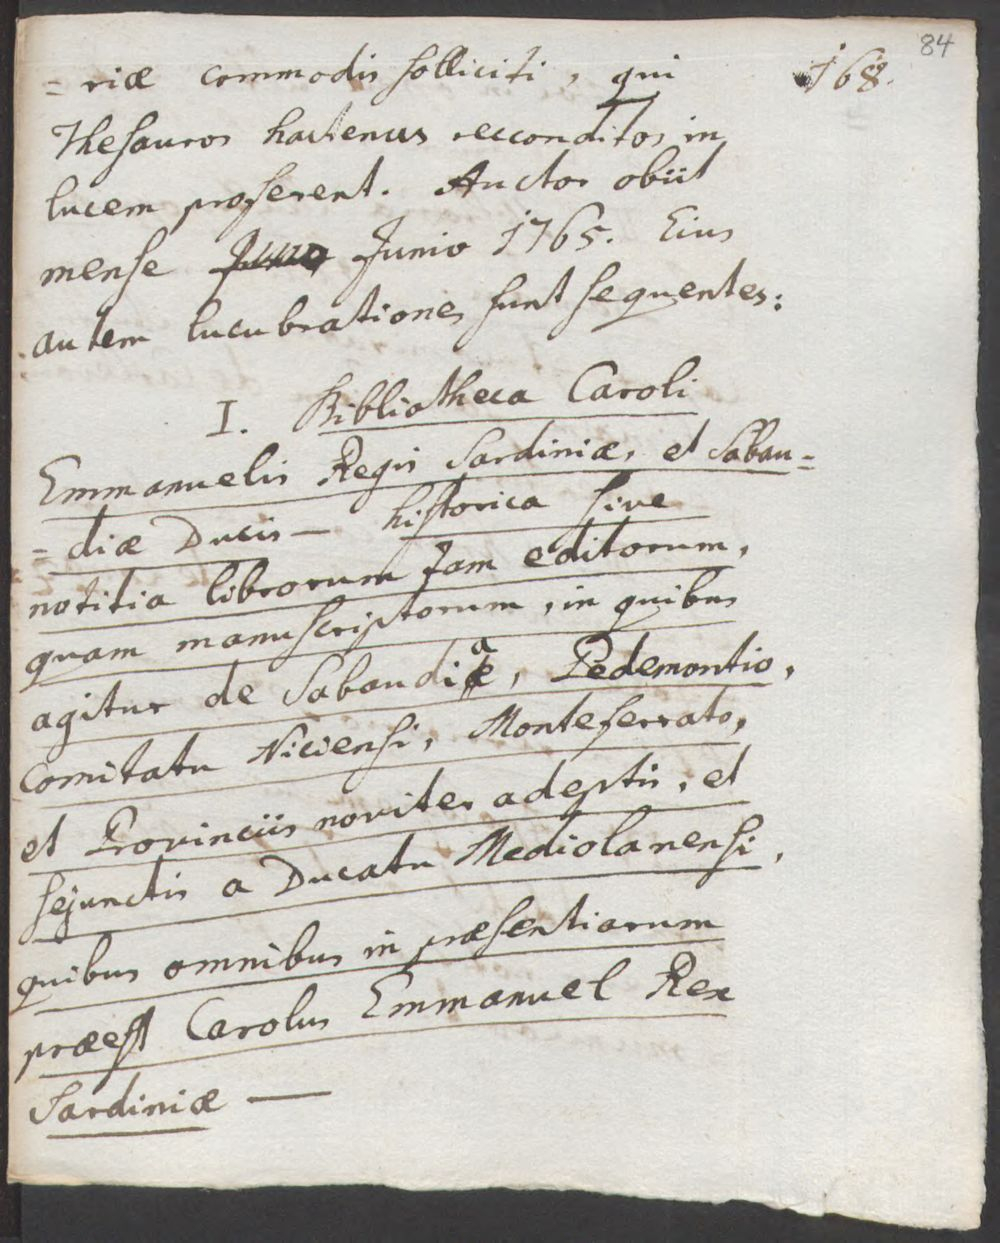 84
168.
= riæ commodis solliciti, qui
Thesauros hactenus recconditos in
lucem proferent. Auctor obiit
mense Junio Junio 1765. Eius
autem lucubrationes sunt sequentes:
I. Bibliotheca Caroli
Emmanuelis Regis Sardiniæ, et Sabau=
= diæ Ducis — historica sive
notitia librorum tam editorum,
quam manuscriptorum, in quibus
agitur de Sabaudia, Pedemontio,
Comitatu Niciensi, Monteferrato,
et Provinciis noviter adeptis, et
sejunctis a Ducatu Mediolanensi,
quibus omnibus in præsentiarum
præest Carolus Emmanuel Rex
Sardiniæ —